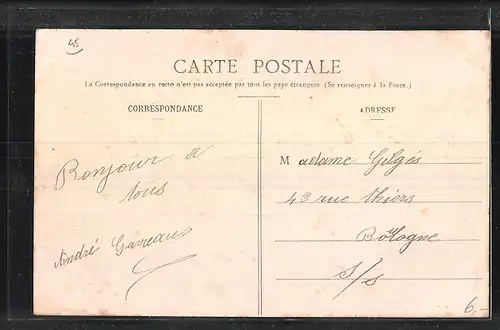 45
CARTE POSTALE
La Correspondance au recto n'est pas acceptée par tous les pays étrangers (Se renseigner à la Poste.)
CORRESPONDANCE
ADRESSE
Bonjour a
tous
André Gaveau
M adame Gilgés
49 rue thiers
Bologne
S/S
6,-